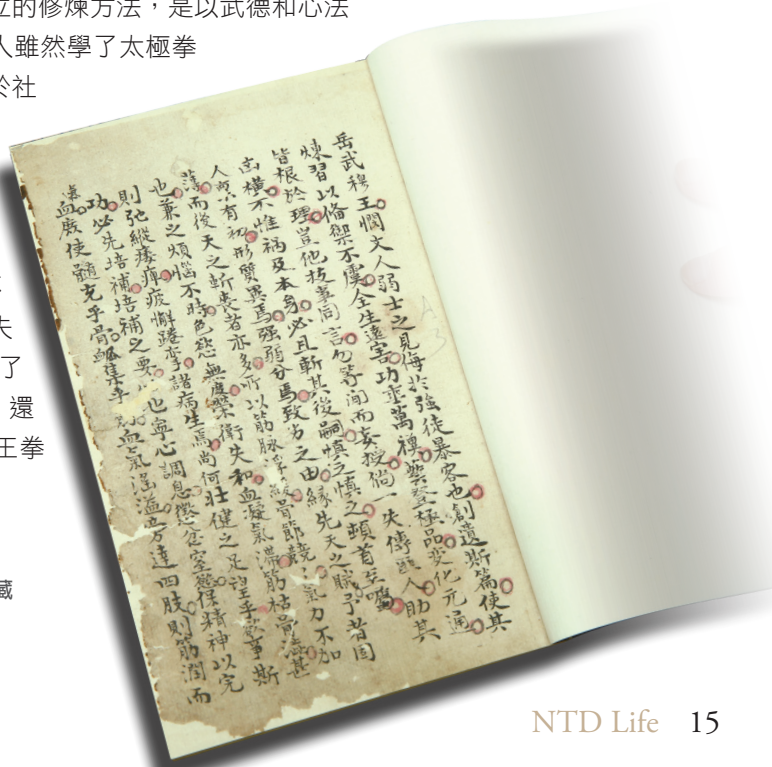 立的修煉方法,是以武德和心法
人雖然學了太極拳
於社
失
了
還
王拳
藏
岳武穆王憫文人弱士之見侮於強徒暴客也創遺斯篇使其
煉習以俻禦不虞全生遠害功垂萬禩藝登極品變化元通
皆根於理豈他技事同言勿等闲而妄授倘一失傳匪人助其
凶横不惟禍及本身必且斬其後嗣慎之慎之頓首至嘱
人禀有初形質異焉强弱分焉致劣之由緣先天之賦予者固
薄而後天之斬喪者亦多所以筋脉浮緩骨節競氣力不加
也兼之煩惱不時色慾無度榮衛失和血凝氣滯筋枯骨澁甚
則弛縱痿痺疲懈諸病生焉尚何壮健之足望乎故事斯
功必先培補培補之要也寧心調息懲忿窒慾保精神以完
血使髓充乎骨集乎血氣滛溢達四肢則筋潤而
NTD Life 15